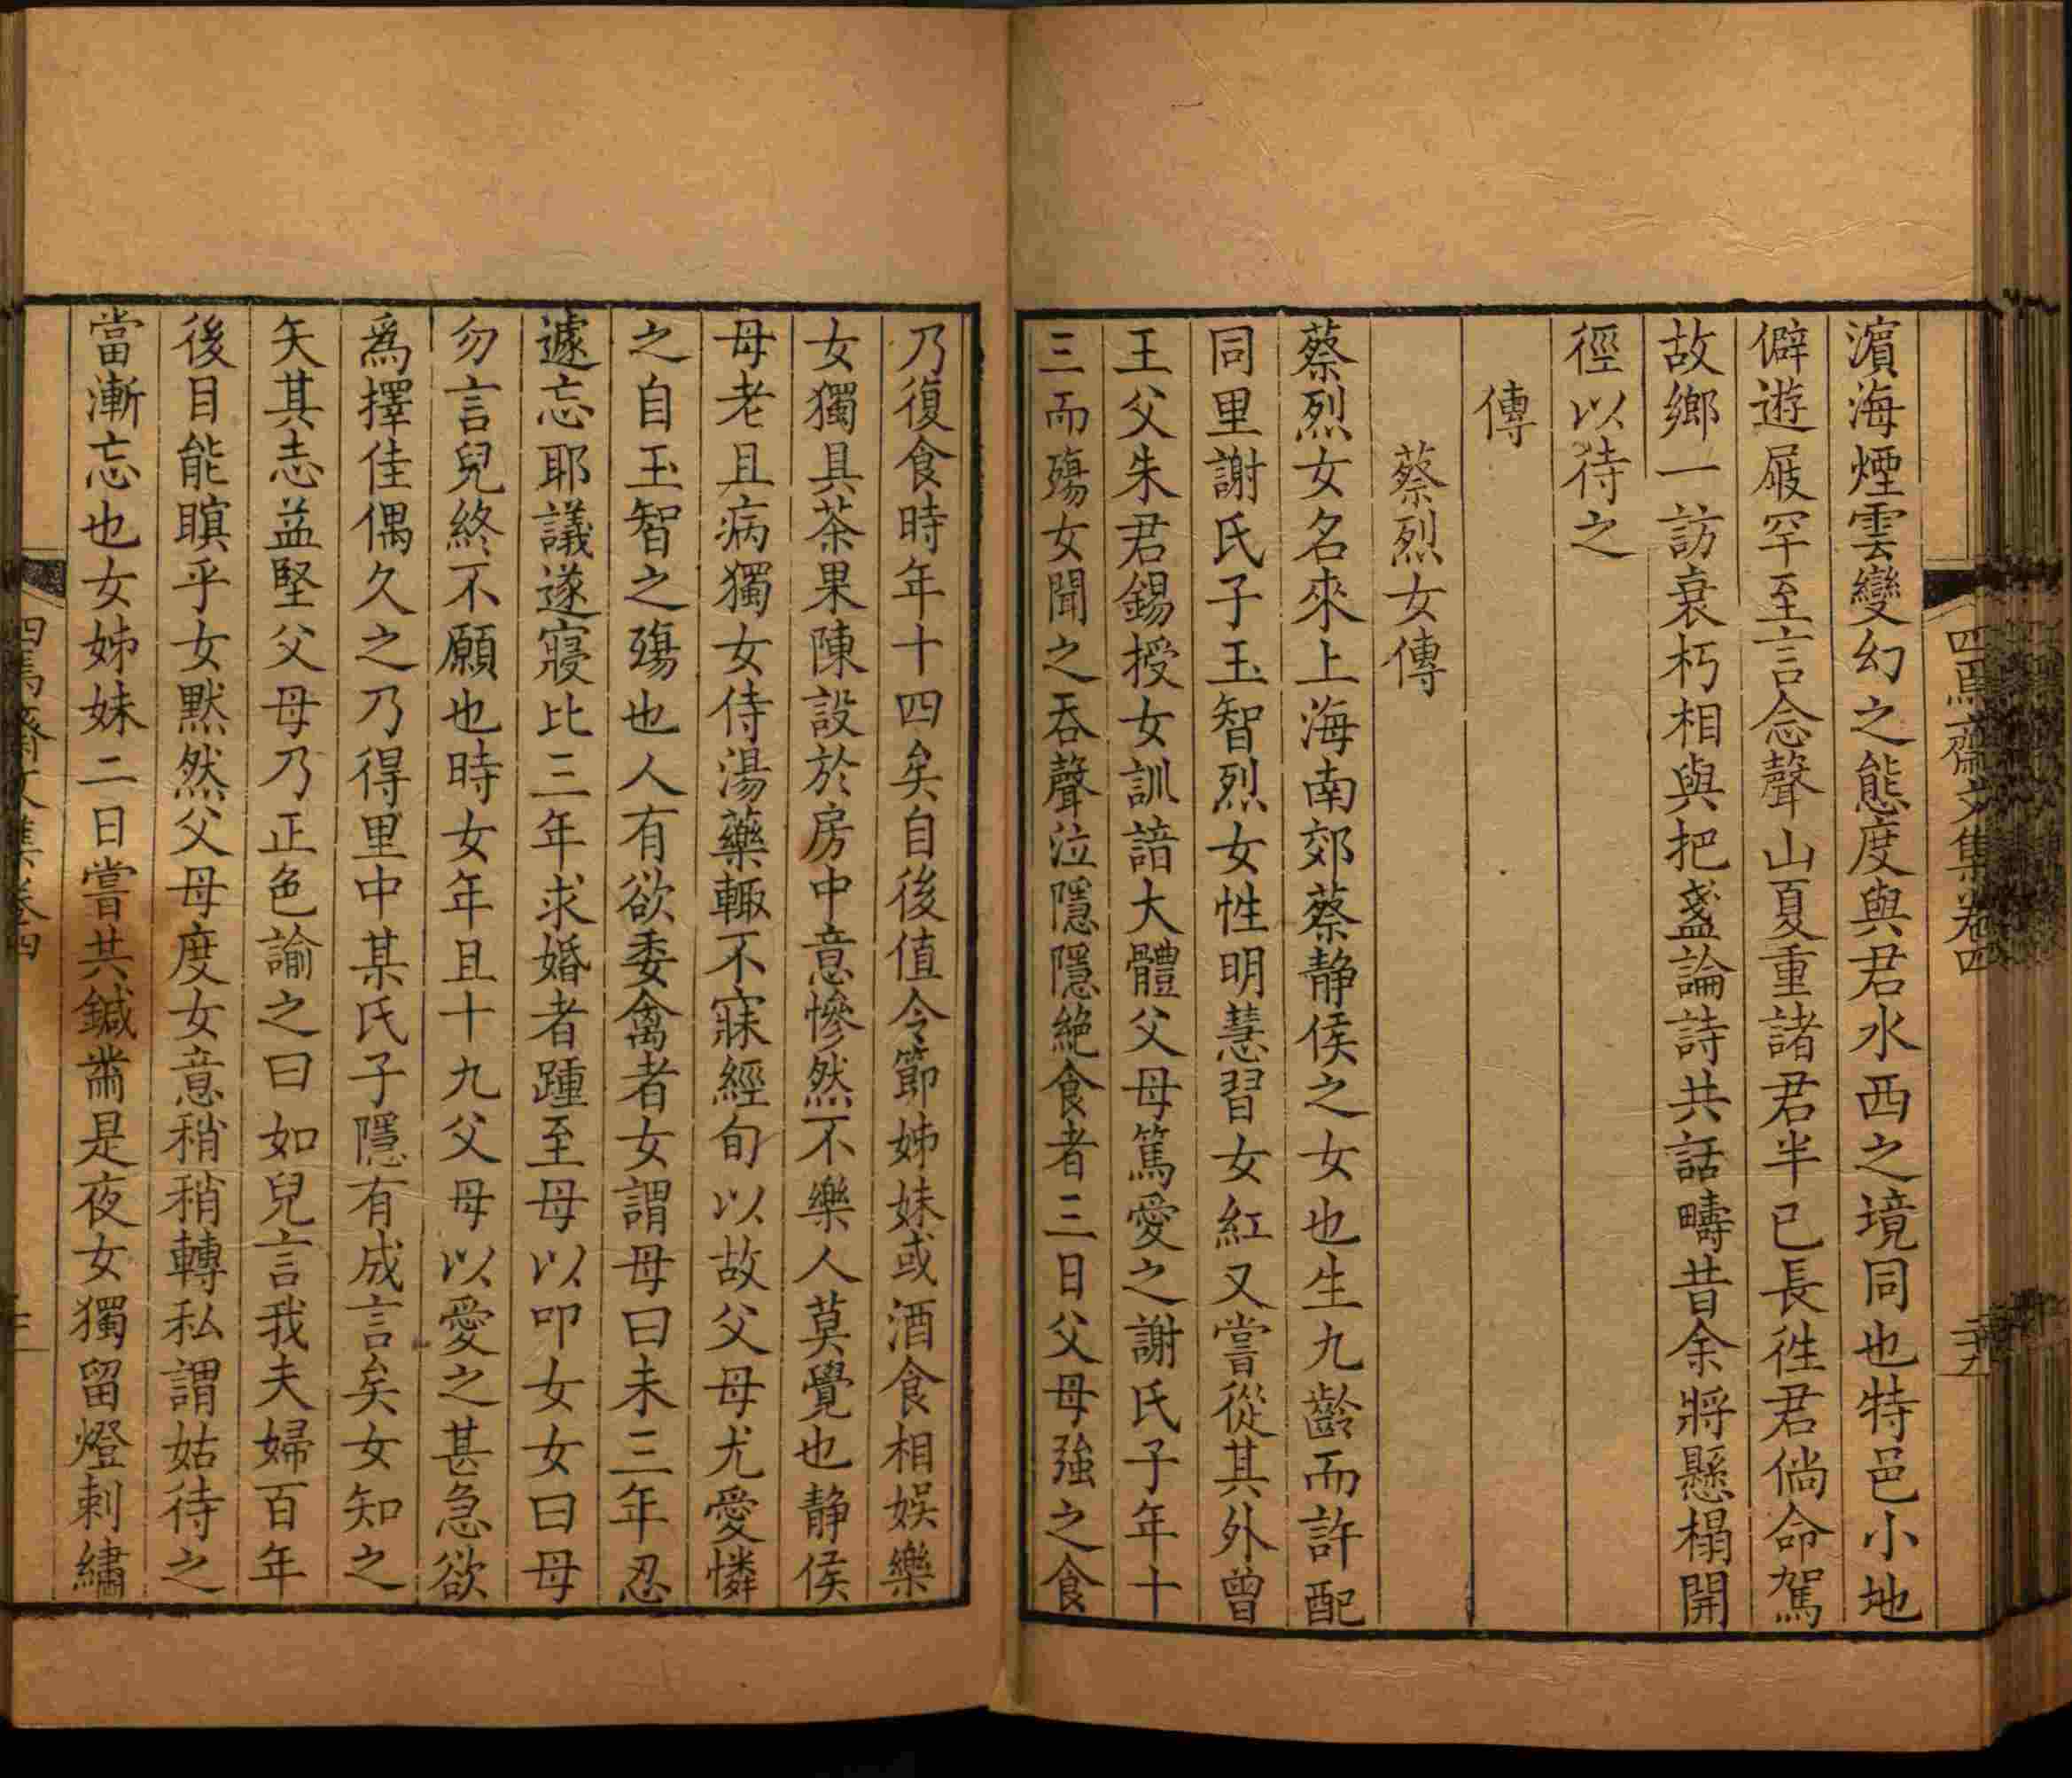 四焉齋文集卷四
二十九
濵海煙雲變幻之態度與君水西之境同也特邑小地
僻遊屐罕至言念聲山夏重諸君半已長徃君倘命駕
故鄉一訪衰朽相與把盞論詩共話疇昔余將懸榻開
徑以待之
傳
蔡烈女傳
蔡烈女名來上海南郊蔡静侯之女也生九齡而許配
同里謝氏子玉智烈女性明慧習女紅又嘗從其外曾
王父朱君錫授女訓諳大體父母篤愛之謝氏子年十
三而殤女聞之吞聲泣隱隱絶食者三日父母強之食
乃復食時年十四矣自後值令節姊妹或酒食相娛樂
女獨具茶果陳設於房中意慘然不樂人莫覺也静侯
母老且病獨女侍湯藥輙不寐經旬以故父母尤愛憐
之自玉智之殤也人有欲委禽者女謂母曰未三年忍
遽忘耶議遂寢比三年求婚者踵至母以叩女女曰母
勿言兒終不願也時女年且十九父母以愛之甚急欲
爲擇佳偶久之乃得里中某氏子隱有成言矣女知之
矢其志益堅父母乃正色諭之曰如兒言我夫婦百年
後目能瞑乎女默然父母度女意稍稍轉私謂姑待之
當漸忘也女姊妹二日嘗共鍼黹是夜女獨留燈刺繡
四焉齋文集卷四